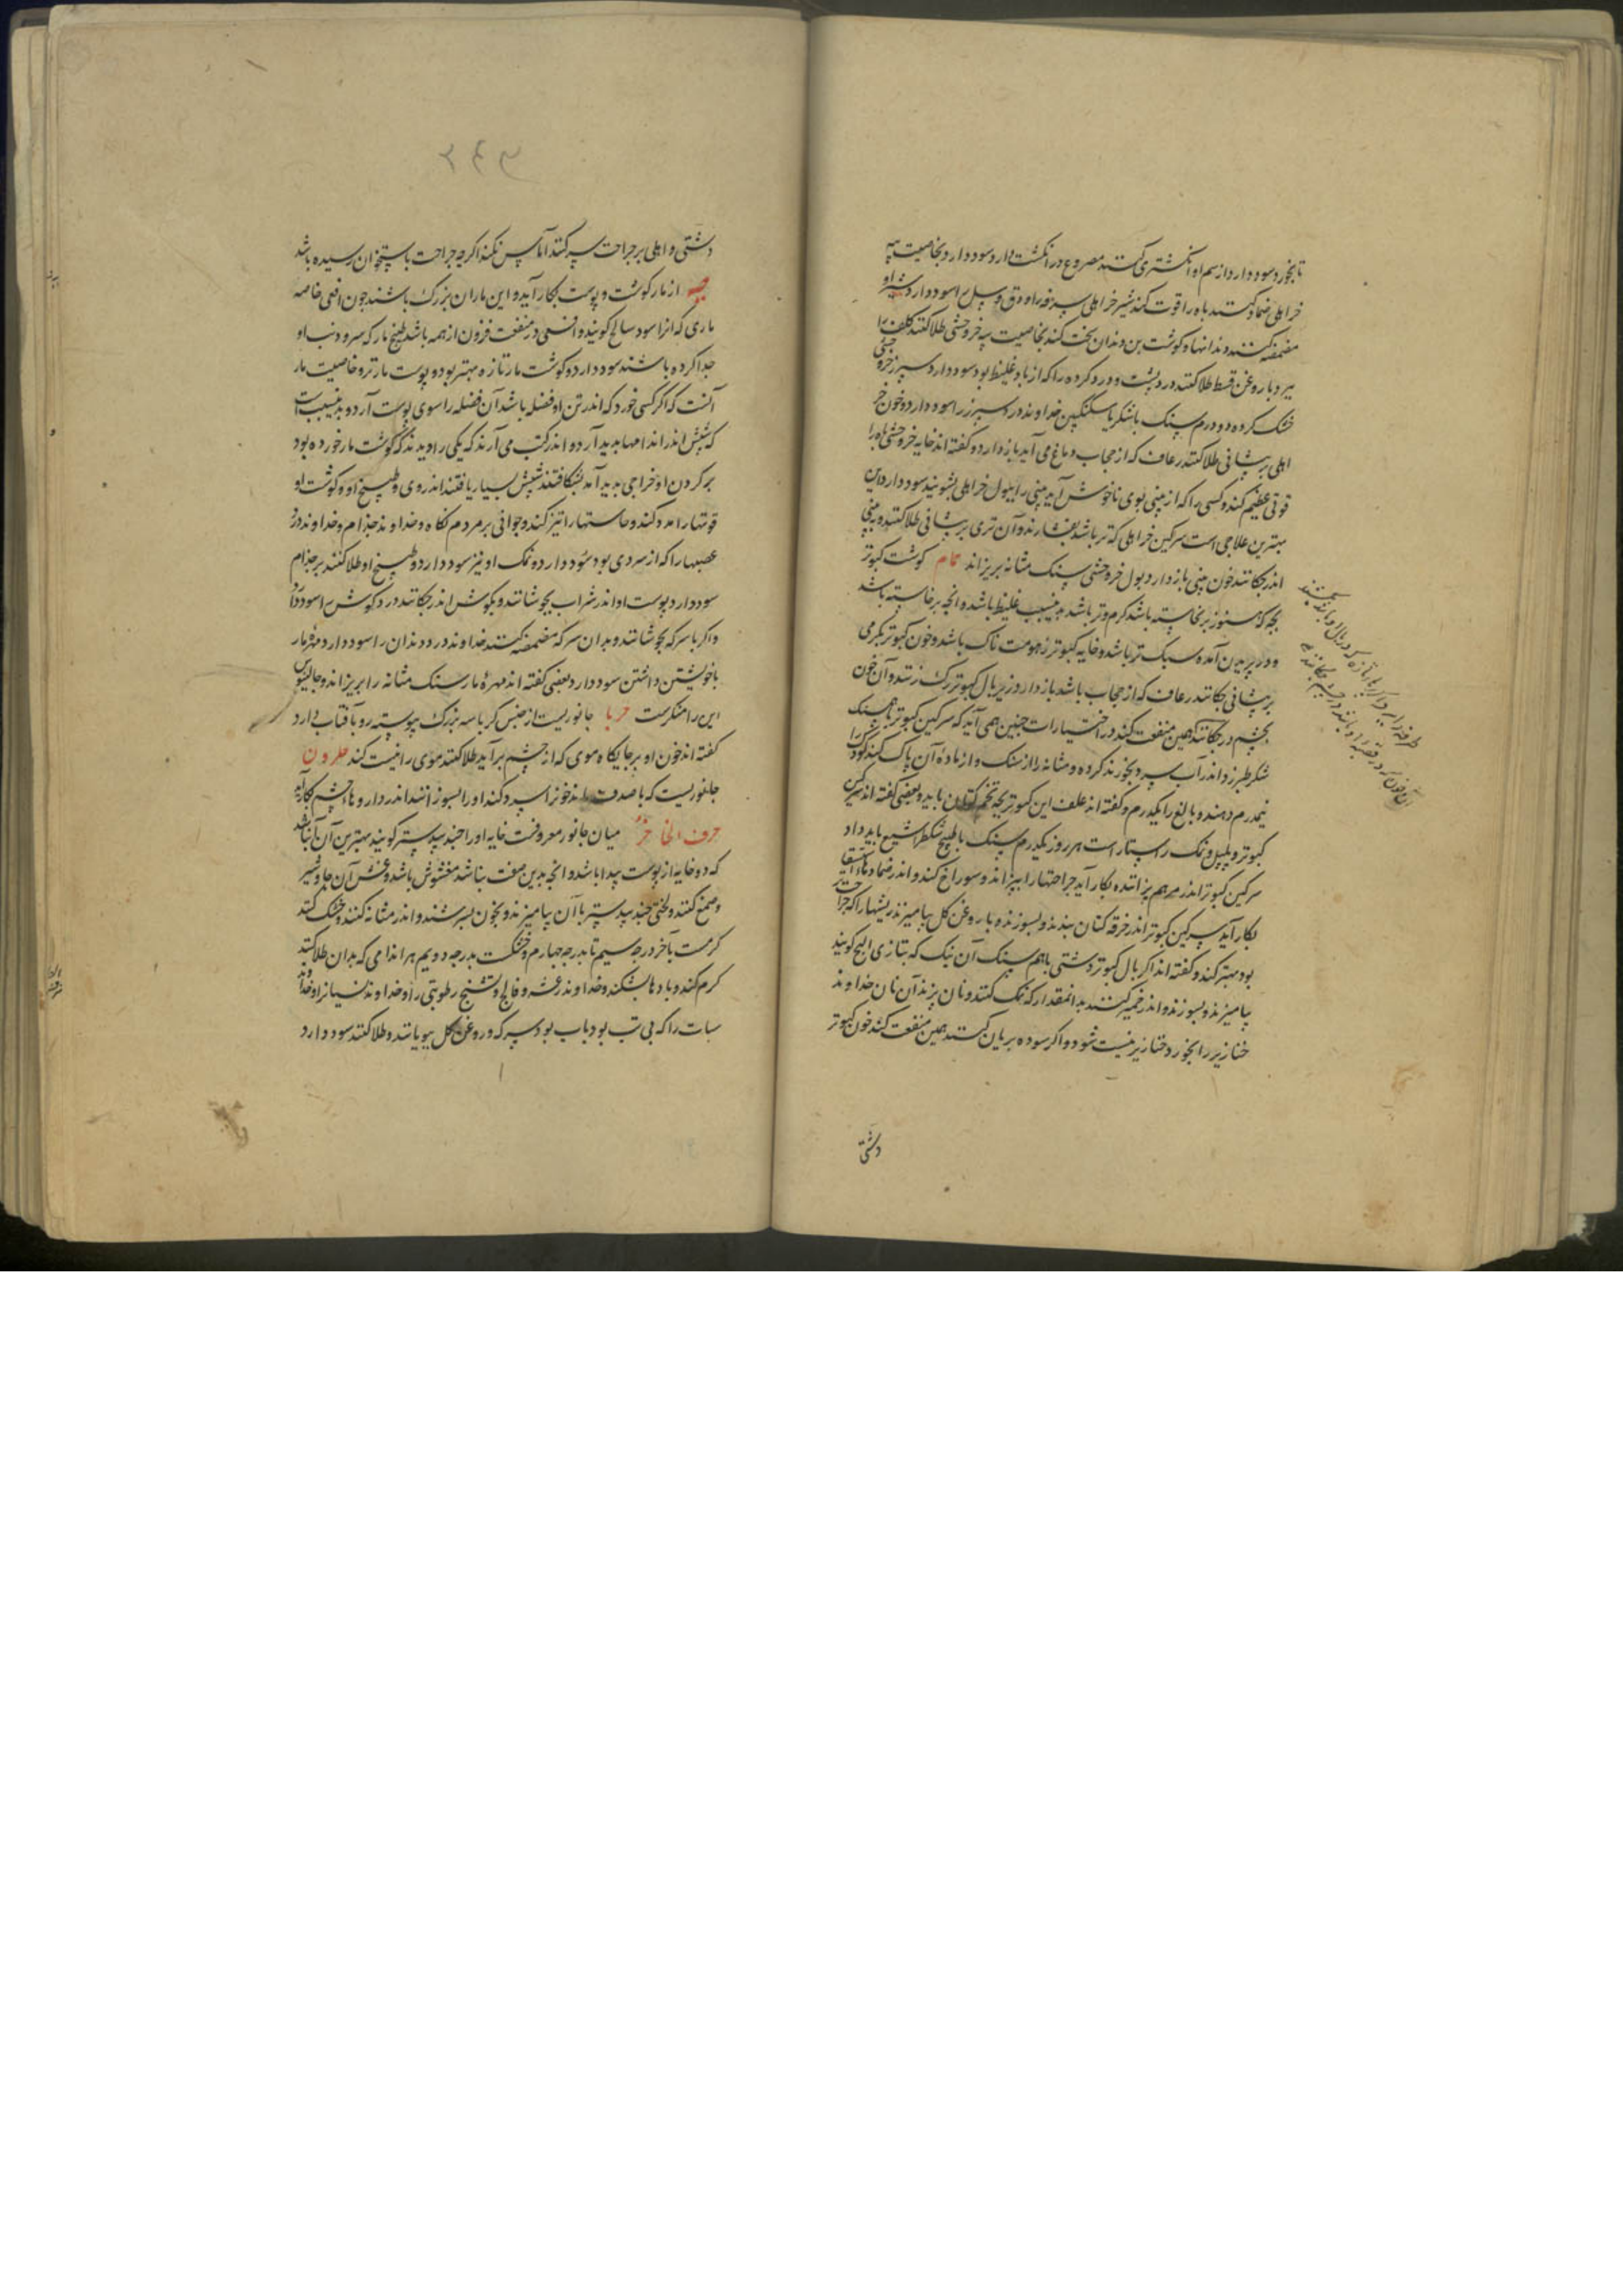 تا بخورد سود دارد از سم او انگشتری کنند مصروع در انگشت دارد سود دارد و بخاصیت پیه
خر اهلی ضماد کنند باه را قوت کند شیر خر اهلی سرفه را و دق و سل را سود دارد شیر او
مضمضه کنند دندانها و گوشت بن دندان سخت کند بخاصیت پیه خر وحشی طلا کنند کلف را
ببرد با روغن قسط طلا کنند درد پشت و درد گرده را که از باد غلیظ بود سود دارد سپرز خر وحشی
خشک کرده دو درم سنگ با شکر یا سکنگبین خداوند درد سپرز را سود دارد و خون خر
اهلی بر پیشانی طلا کنند رعاف که از حجاب دماغ می آید باز دارد و گفته اند خایه خر وحشی باه را
قوتی عظیم کند و کسی را که از بینی بوی ناخوش آید بینی را ببول خر اهلی بشویند سود دارد این
بهترین علاجی است سرگین خر اهلی که تر باشد بفشارند و آن تری بر پیشانی طلا کنند و بینی
اندر چکانند خون بینی باز دارد بول خر وحشی سنگ مثانه بریزاند حمام گوشت کبوتر
بچه که هنوز برنخاسته باشد گرم و تر باشد بدینسبب غلیظ باشد و آنچه برخاسته باشد
و در پریدن آمده سبک تر باشد و خایه کبوتر زهومت ناک باشد و خون کبوتر بگرمی
بر پیشانی چکانند رعاف که از حجاب باشد باز دارد و زیر بال کبوتر رگ زنند و آن خون
بچشم در چکانند همین منفعت کند در اختیارات چنین همی آید که سرگین کبوتر با همسنگ
شکر طبرزد اندر آب سرد بخورند گرده و مثانه را از سنگ و از ماده آن پاک کند کودک را
نیمدرم دهند و بالغ را یکدرم و گفته اند علف این کبوتر بچه تخم کتان باید و بعضی گفته اند سرگین
کبوتر و پلپل و نمک راستا راست هر روز یکدرم سنگ با طبیخ شکطرا شیع باید داد
سرگین کبوتر اندر مرهم پزاننده بکار آید جراحتها را بپزاند و سوراخ کند و اندر ضماد
بکار آید سرگین کبوتر اندر خرقه کتان بندند و بسوزند و با روغن گل بیامیزند ریشها را که
بود بهتر کند و گفته اند اگر بال کبوتر دشتی با هم سنگ آن نمک که بتازی الملح گویند
بیامیزند و بسوزند و اندر خمیر کنند بدانمقدار که نمک کنند و نان پزند آن نان خداوند
خنازیر را بخورد خنازیر نیست شود و اگر سوده بریان کنند همین منفعت کند خون کبوتر
دشتی
دشتی و اهلی بر جراحت سر کنند آماس نکند اگرچه جراحت باستخوان رسیده باشد
حیه از مار گوشت و پوست بکار آید و این ماران بزرگ باشند چون افعی خاصه
ماری که آنرا اسود سالخ گویند و افعی در منفعت فزون از همه باشد طبیخ مار که سر و دنب او
جدا کرده باشند سود دارد و گوشت مار تازه بهتر بود و پوست مار نر و خاصیت مار
آنست که اگر کسی خورد که اندر تن او فضله باشد آن فضله را سوی پوست آرد و بدینسبب است
که شپش اندر اندامها پدید آرد و اندر کتب می آرند که یکی را دیدند که گوشت مار خورده بود
بر گردن او خراجی پدید آمد بشکافتند شپش بسیار یافتند اندر وی و طبیخ او و گوشت او
قوتها را مدد کند و حاستها را تیز کند و جوانی بر مردم نگاه و خداوند جذام و خداوند درد
عصبها را که از سردی بود سود دارد و نمک او نیز سود دارد و طبیخ او طلا کنند بر جذام
سود دارد پوست او اندر شراب بجوشانند و بگوش اندر چکانند درد گوش را سود دارد
و اگر با سرکه بجوشانند و بدان سرکه مضمضه کنند خداوند درد دندان را سود دارد مهره مار
با خویشتن داشتن سود دارد بعضی گفته اند مهره مار سنگ مثانه را بریزاند و جالینوس
این را منکرست حربا جانوریست از جنس کرباسه بزرگ پیوسته رو بآفتاب دارد
گفته اند خون او بر جایگاه موی که از چشم بر آید طلا کنند موی را نیست کند حلزون
جانوریست که با صدف باشد خون را سرد کند او را بسوزانند اندر داروهاء چشم بکار آید
حرف الخا خز میان جانور معروفست خایه او را جندبیدستر گویند بهترین آن آن باشد
که دو خایه از پوست پیدا باشد و آنچه بدین صفت نباشد مغشوش باشد و غش آن جاوشیر
و صمغ کنند و لختی جندبیدستر با آن بیامیزند و بخون بسرشند و اندر مثانه کنند و خشک کنند
گرمست بآخر درجه سیم تا بدرجه چهارم و خشکست بدرجه دویم هر اندامی که بدان طلا کنند
گرم کند و بادها بشکند و خداوند رعشه و فالج و تشنج رطوبتی را و خداوند نسیان را و خداوند
سبات را که بی تب بود یا با تب بود سرکه و روغن گل ببویانند و طلا کنند سود دارد